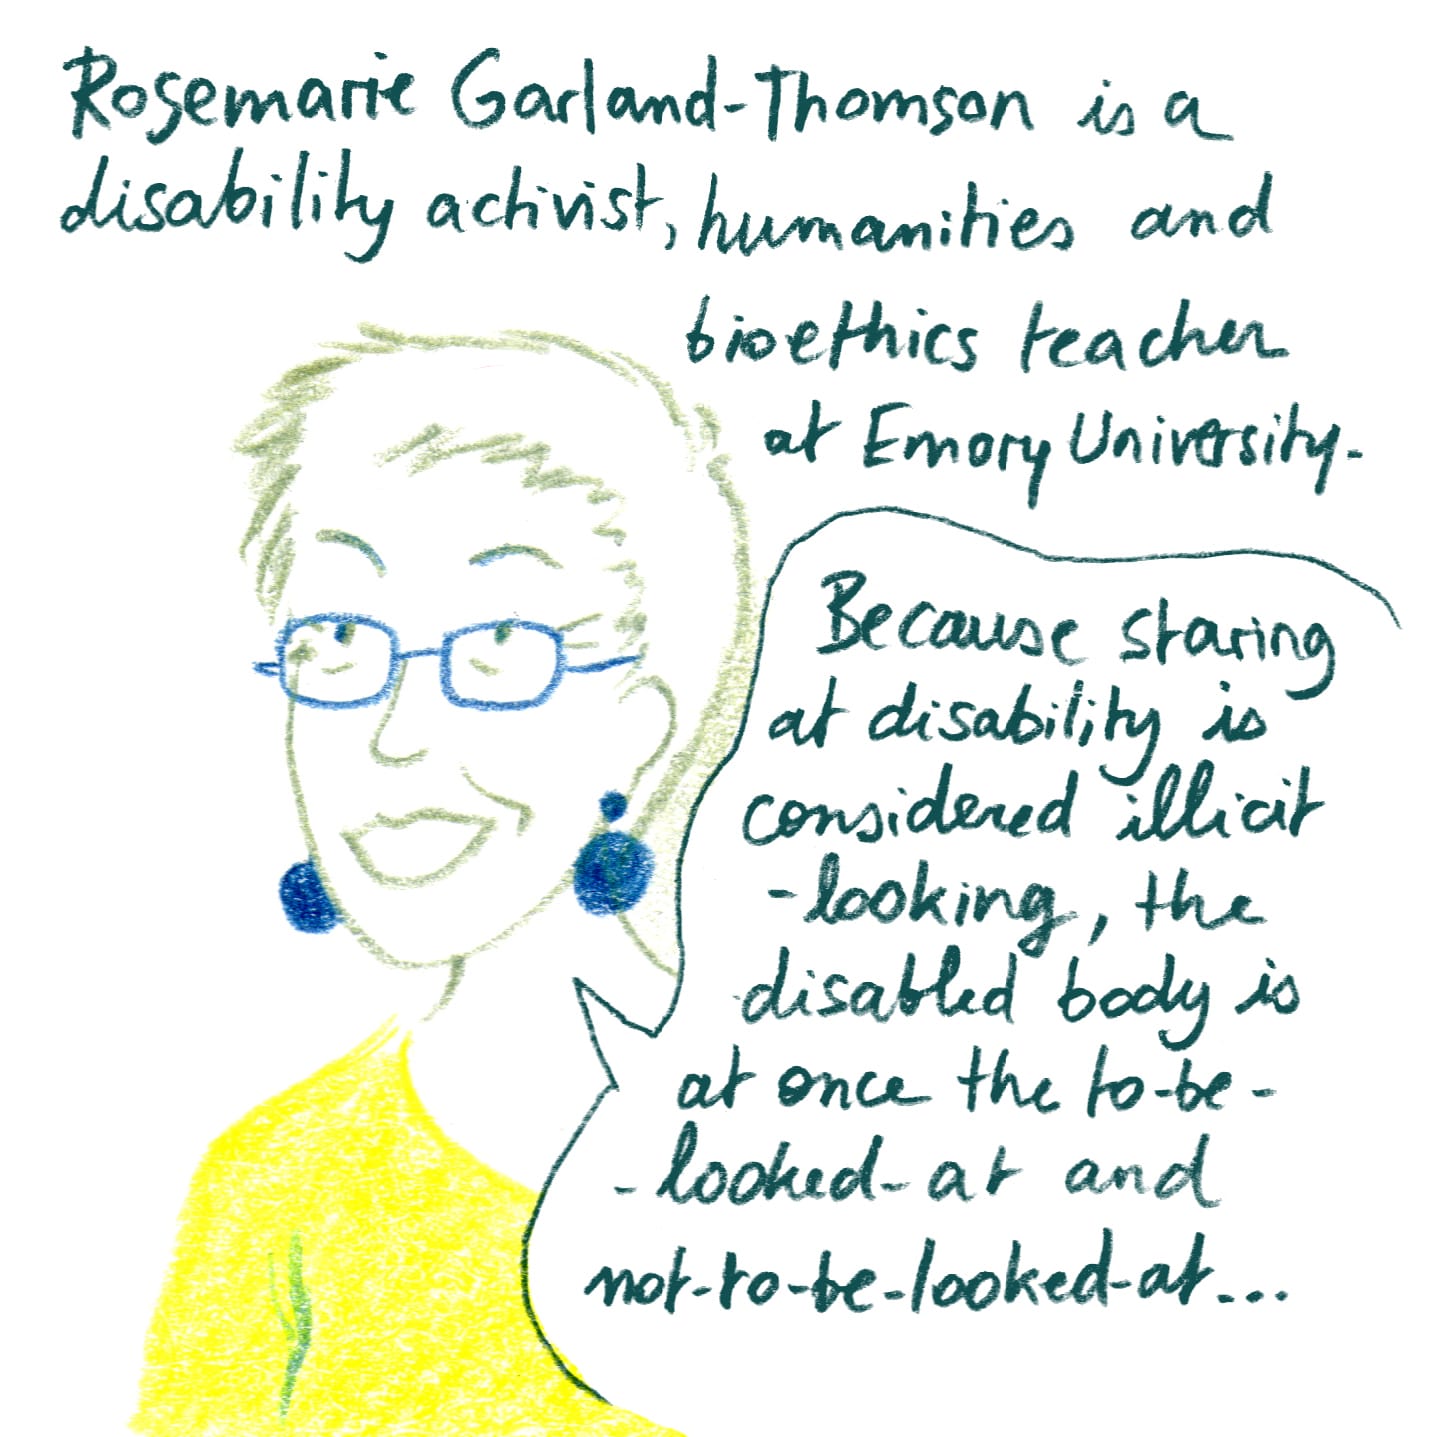 Rosemarie Garland-Thomson is a
disability activist, humanities and
bioethics teacher
at Emory University.
Because staring
at disability is
considered illicit
-looking, the
disabled body is
at once the to-be-
-looked-at and
not-to-be-looked-at...